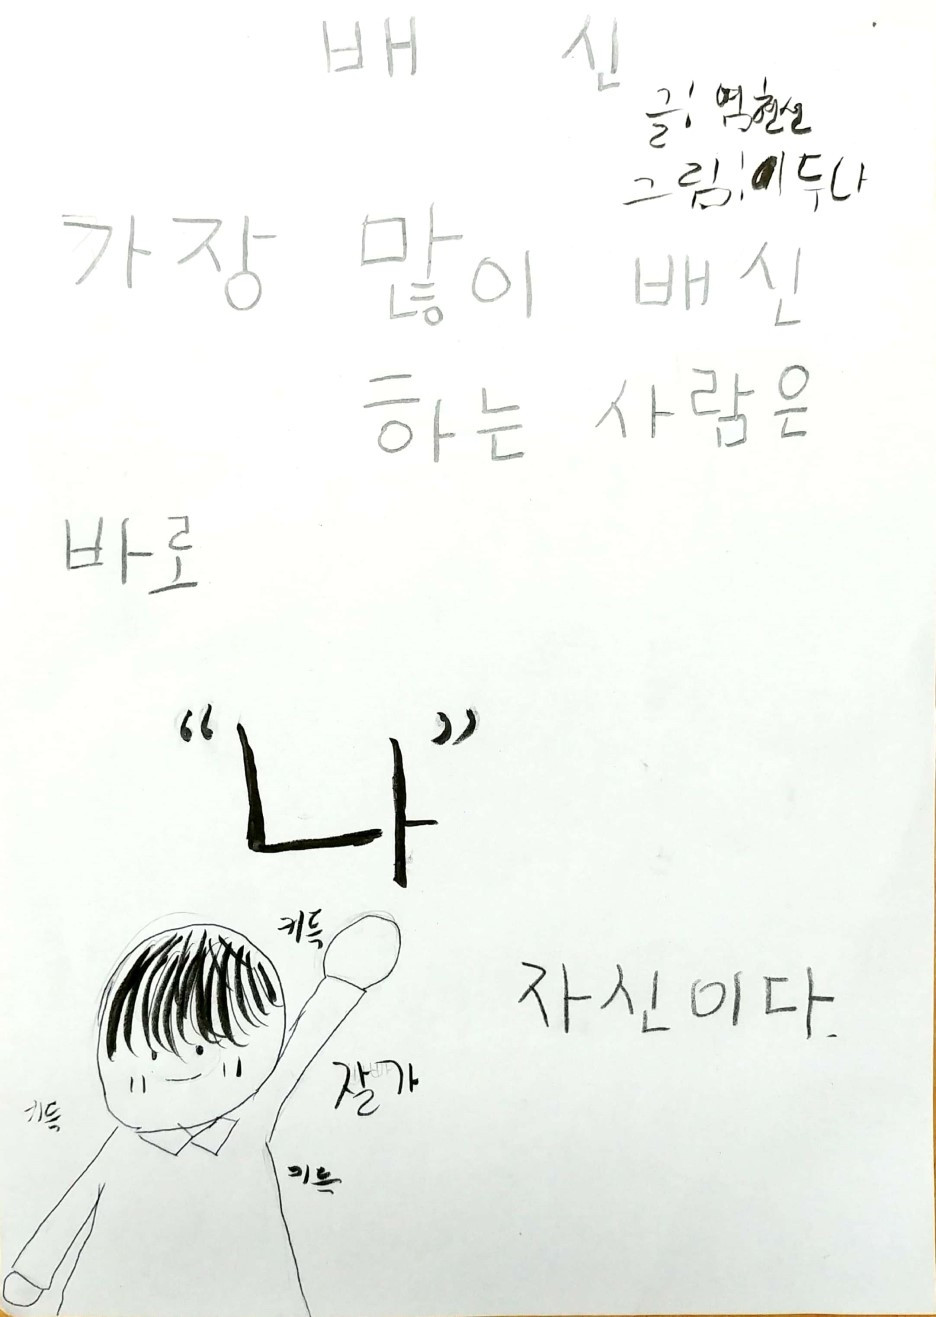 배 신
글: 염현선
그림: 이두나
가장 많이 배신
하는 사람은
바로
“나”
키득
자신이다.
잘가
키득
키득